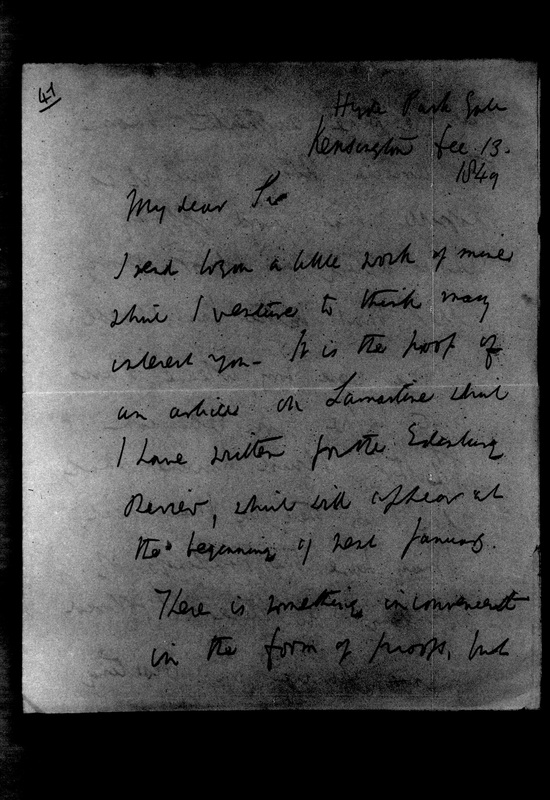 41
Hyde Park Gate
Kensington Dec. 13.
1849
My dear Sir
I send to you a little work of mine
which I venture to think may
interest you - It is the proof of
an article on Lamartine which
I have written for the Edinburg
Review, which will appear at
the beginning of next January.
There is something inconvenient
in the form of proofs, but